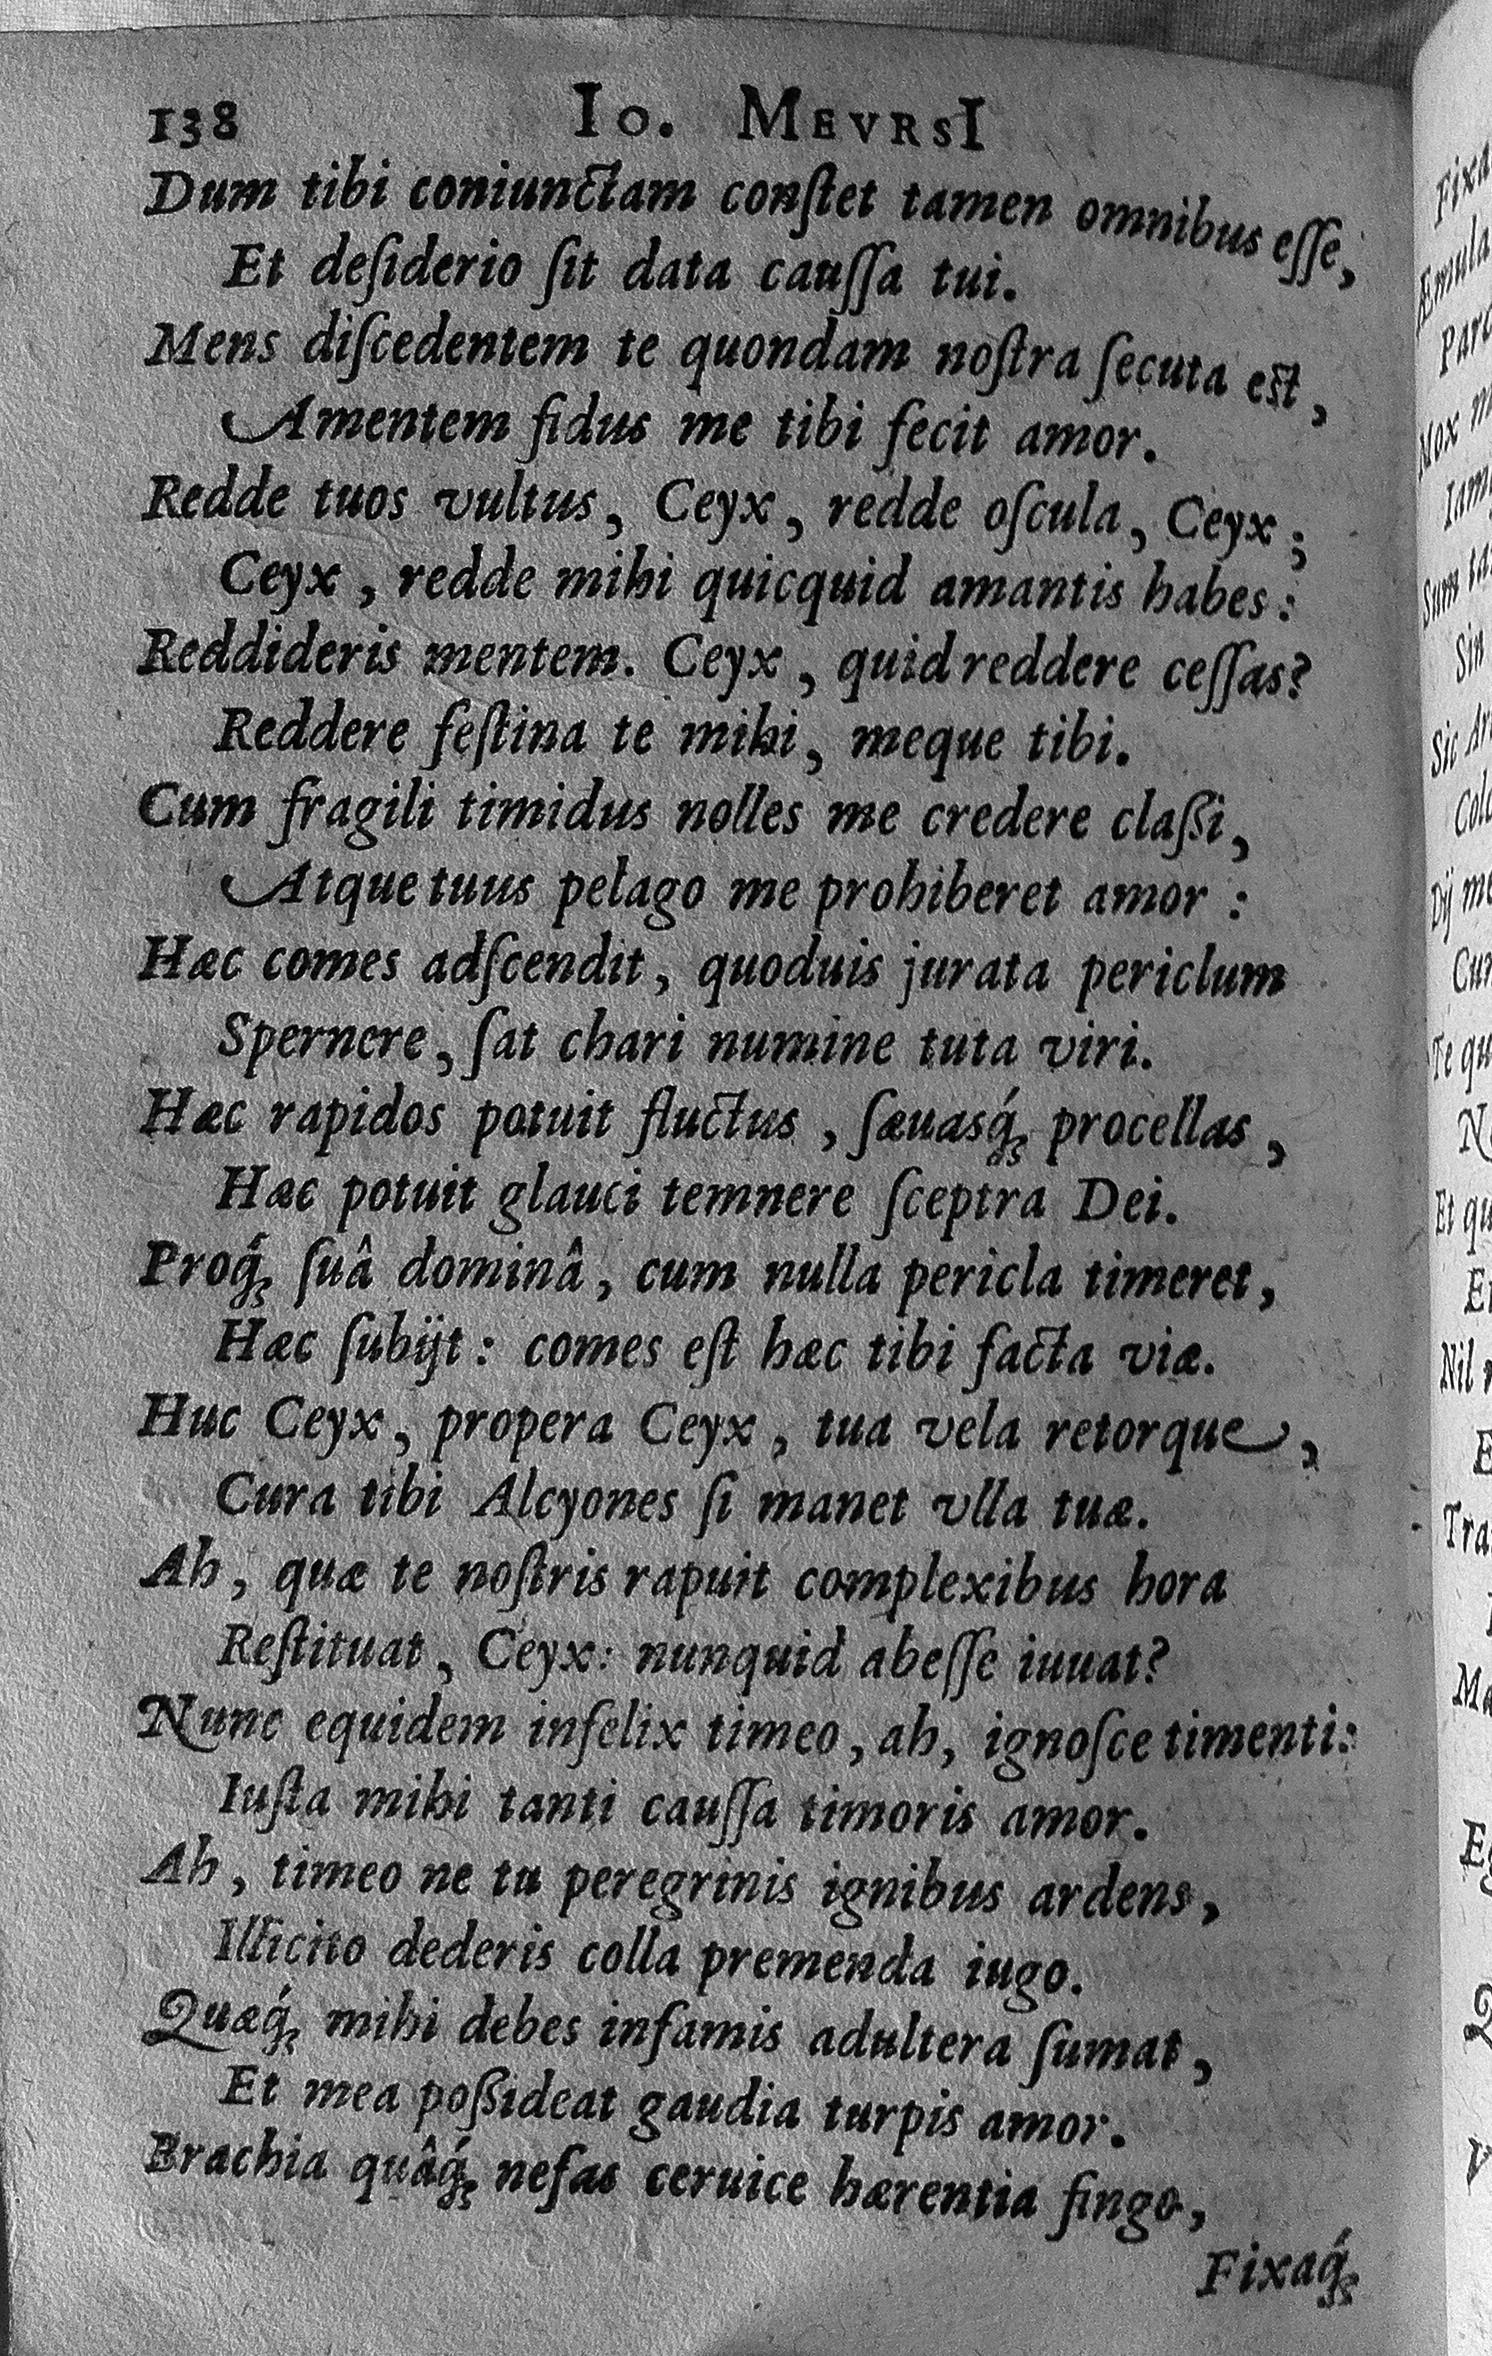 138 Io. MEVRSI
Dum tibi coniunctam conſtet tamen omnibus eſſe,
Et deſiderio ſit data cauſſa tui.
Mens diſcedentem te quondam noſtra ſecuta eſt,
Amentem fidus me tibi fecit amor.
Redde tuos vultus, Ceyx, redde oſcula, Ceyx;
Ceyx, redde mihi quicquid amantis habes:
Reddideris mentem. Ceyx, quid reddere ceſſas?
Reddere feſtina te mihi, meque tibi.
Cum fragili timidus nolles me credere claßi,
Atque tuus pelago me prohiberet amor:
Hæc comes adſcendit, quoduis jurata periclum
Spernere, ſat chari numine tuta viri.
Hæc rapidos potuit fluctus, ſæuasq́; procellas,
Hæc potuit glauci temnere ſceptra Dei.
Proq́; ſuâ dominâ, cum nulla pericla timeret,
Hæc ſubijt: comes eſt hæc tibi facta viæ.
Huc Ceyx, propera Ceyx, tua vela retorque,
Cura tibi Alcyones ſi manet vlla tuæ.
Ah, quæ te noſtris rapuit complexibus hora
Reſtituat, Ceyx: nunquid abeſſe iuuat?
Nunc equidem infelix timeo, ah, ignoſce timenti:
Iuſta mihi tanti cauſſa timoris amor.
Ah, timeo ne tu peregrinis ignibus ardens,
Illicito dederis colla premenda iugo.
Quæq́; mihi debes infamis adultera ſumat,
Et mea poßideat gaudia turpis amor.
Brachia quâq́; nefas ceruice hærentia fingo,
Fixaq́;
Fixa
Æmula
Mox
Sum
Sin
Sic
Dij me
Te
Et
Nil